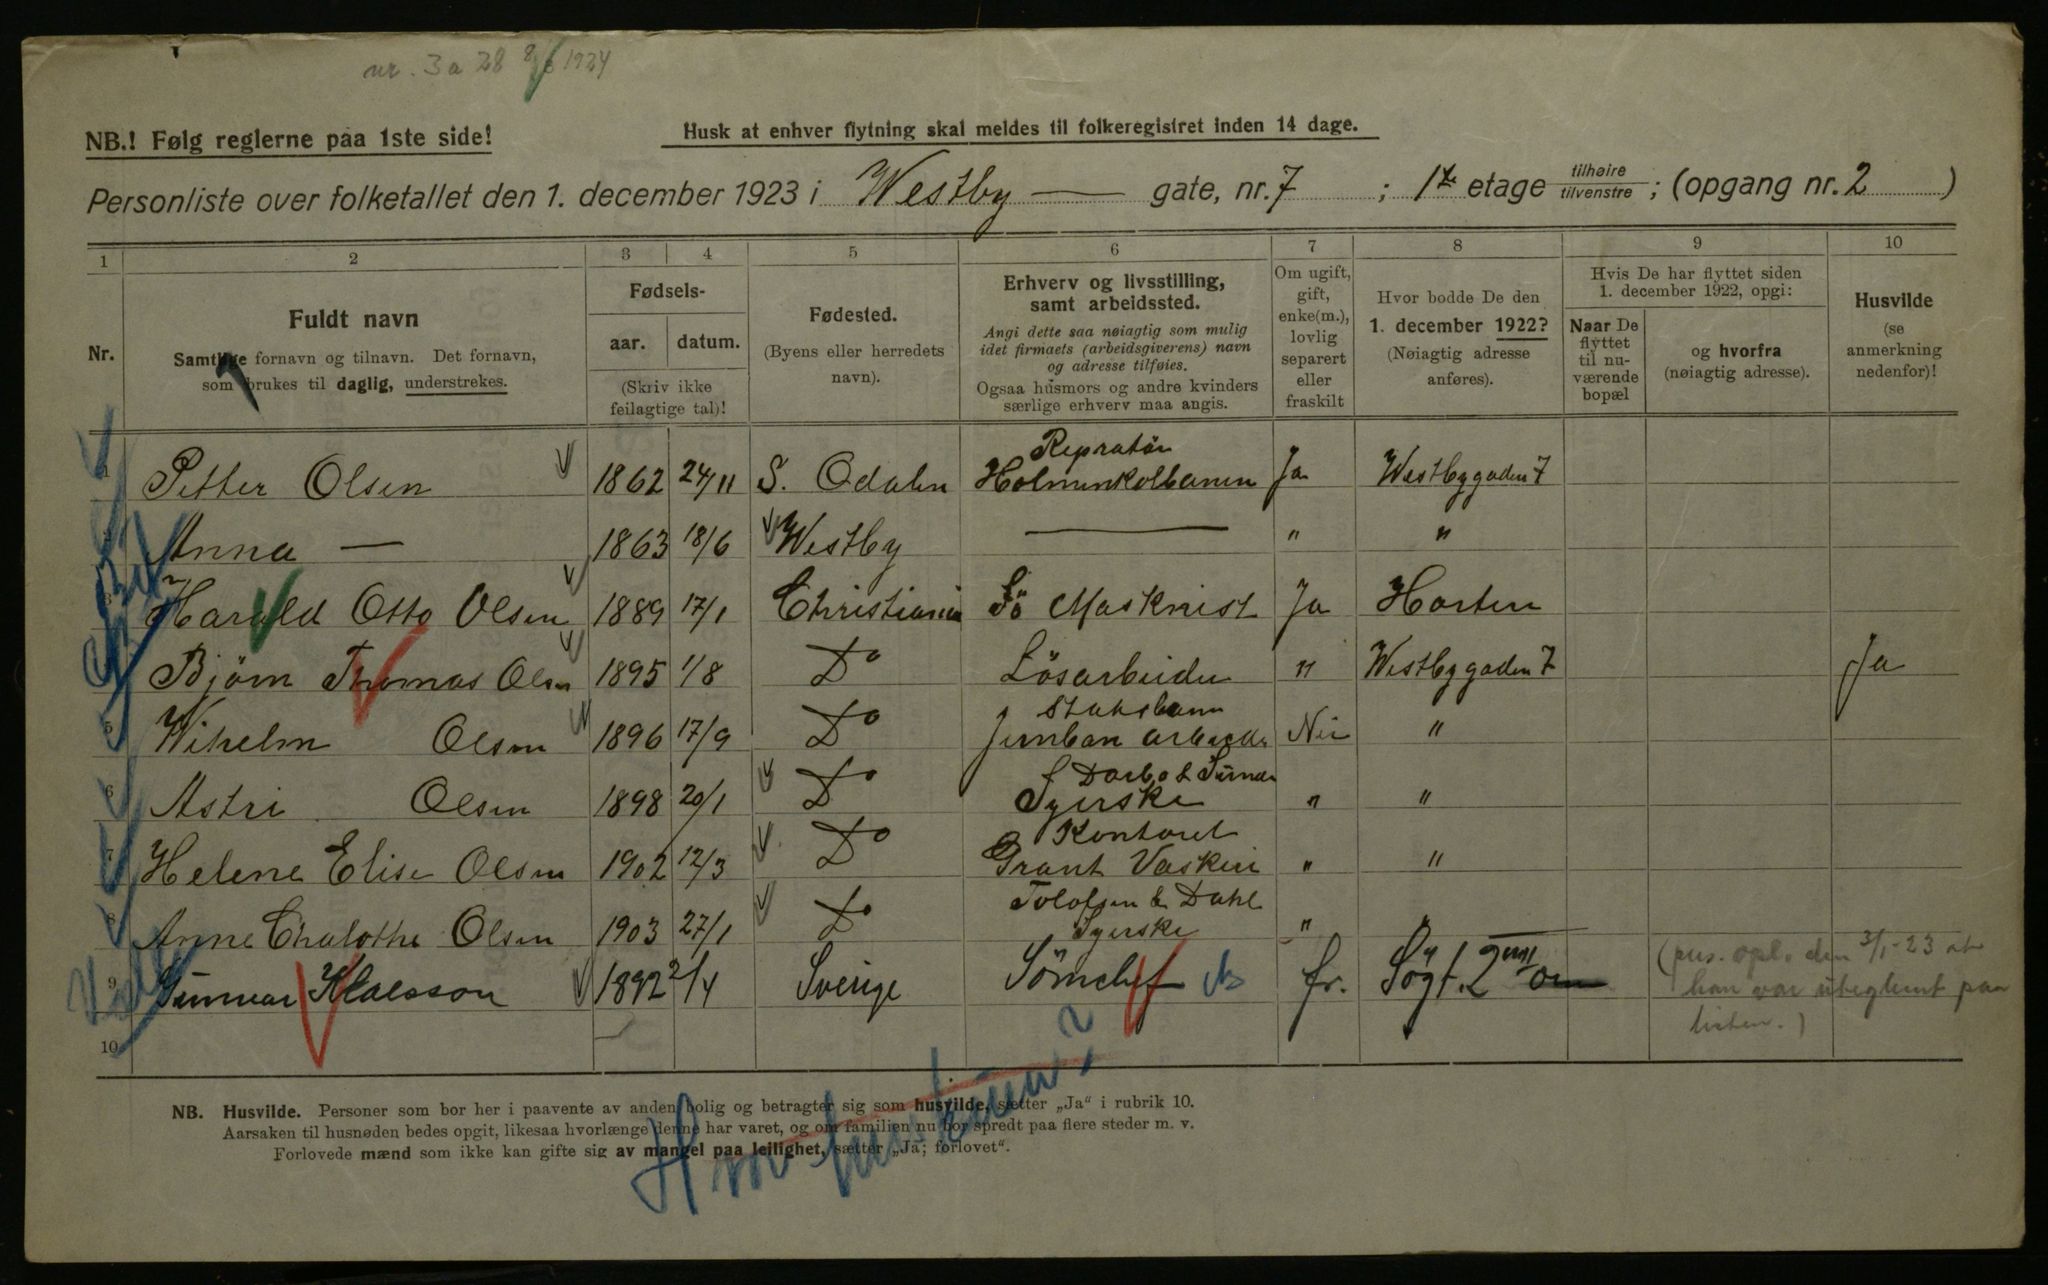 nr. 3a 28 8/6 1924
NB.! Følg reglerne paa 1ste side!
Husk at enhver flytning skal meldes til folkeregistret inden 14 dage.
Personliste over folketallet den 1. december 1923 i Westby — gate, nr. 7 ; 1ste etage tilhøire tilvenstre ; (opgang nr. 2 )
1 2 3 4 5 6 7 8 9 10
Nr.
Fuldt navn
Samtlige fornavn og tilnavn. Det fornavn,
som brukes til daglig, understrekes.
Fødsels-
aar. datum.
(Skriv ikke
feilagtige tal)!
Fødested.
(Byens eller herredets
navn).
Erhverv og livsstilling,
samt arbeidssted.
Angi dette saa nøiagtig som mulig
idet firmaets (arbeidsgiverens) navn
og adresse tilføies.
Ogsaa husmors og andre kvinders
særlige erhverv maa angis.
Om ugift,
gift,
enke(m.),
lovlig
separert
eller
fraskilt
Hvor bodde De den
1. december 1922?
(Nøiagtig adresse
anføres).
Hvis De har flyttet siden
1. december 1922, opgi:
Naar De
flyttet
til nu-
værende
bopæl
og hvorfra
(nøiagtig adresse).
Husvilde
(se
anmerkning
nedenfor)!
Repratør
1 Petter Olsen 1862 24/11 S. Odalen Holmenkolbanen Ja Westbygaden 7
2 Anna — 1863 18/6 Westby — " "
3 Harald Otto Olsen 1889 17/1 Christiania Sö Masknist Ja Horten
4 Bjørn Thomas Olsen 1895 1/8 Do Lösarbeider " Westbygaden 7 Ja
Statsbann
5 Wihelm Olsen 1896 17/9 Do Jernban arbeider Nei "
6 Astri Olsen 1898 20/1 Do Syerske " "
Kontoret
7 Helene Elise Olsen 1902 12/3 Do Grant Vaskeri " "
Tolofsen & Dahl
8 Anne Chalothe Olsen 1903 27/1 Do Syerske "
9 Gunnar Klaesson 1892 2/4 Sverige fr. Søgt. 2 om
(pers. opl. den 3/1-23 at
han var uteglemt paa
listen.)
10
NB. Husvilde. Personer som bor her i paavente av anden bolig og betragter sig som husvilde, sætter „Ja“ i rubrik 10.
Aarsaken til husnøden bedes opgit, likesaa hvorlænge denne har varet, og om familien nu bor spredt paa flere steder m. v.
Forlovede mænd som ikke kan gifte sig av mangel paa leilighet, sætter „Ja; forlovet“.